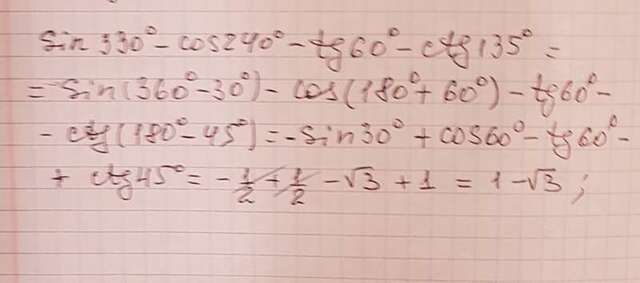 sin 330° - cos 240° - tg 60° - ctg 135° =
= sin(360° - 30°) - cos(180° + 60°) - tg 60° -
- ctg(180° - 45°) = - sin 30° + cos 60° - tg 60° -
+ ctg 45° = - 1/2 + 1/2 - √3 + 1 = 1 - √3 ;